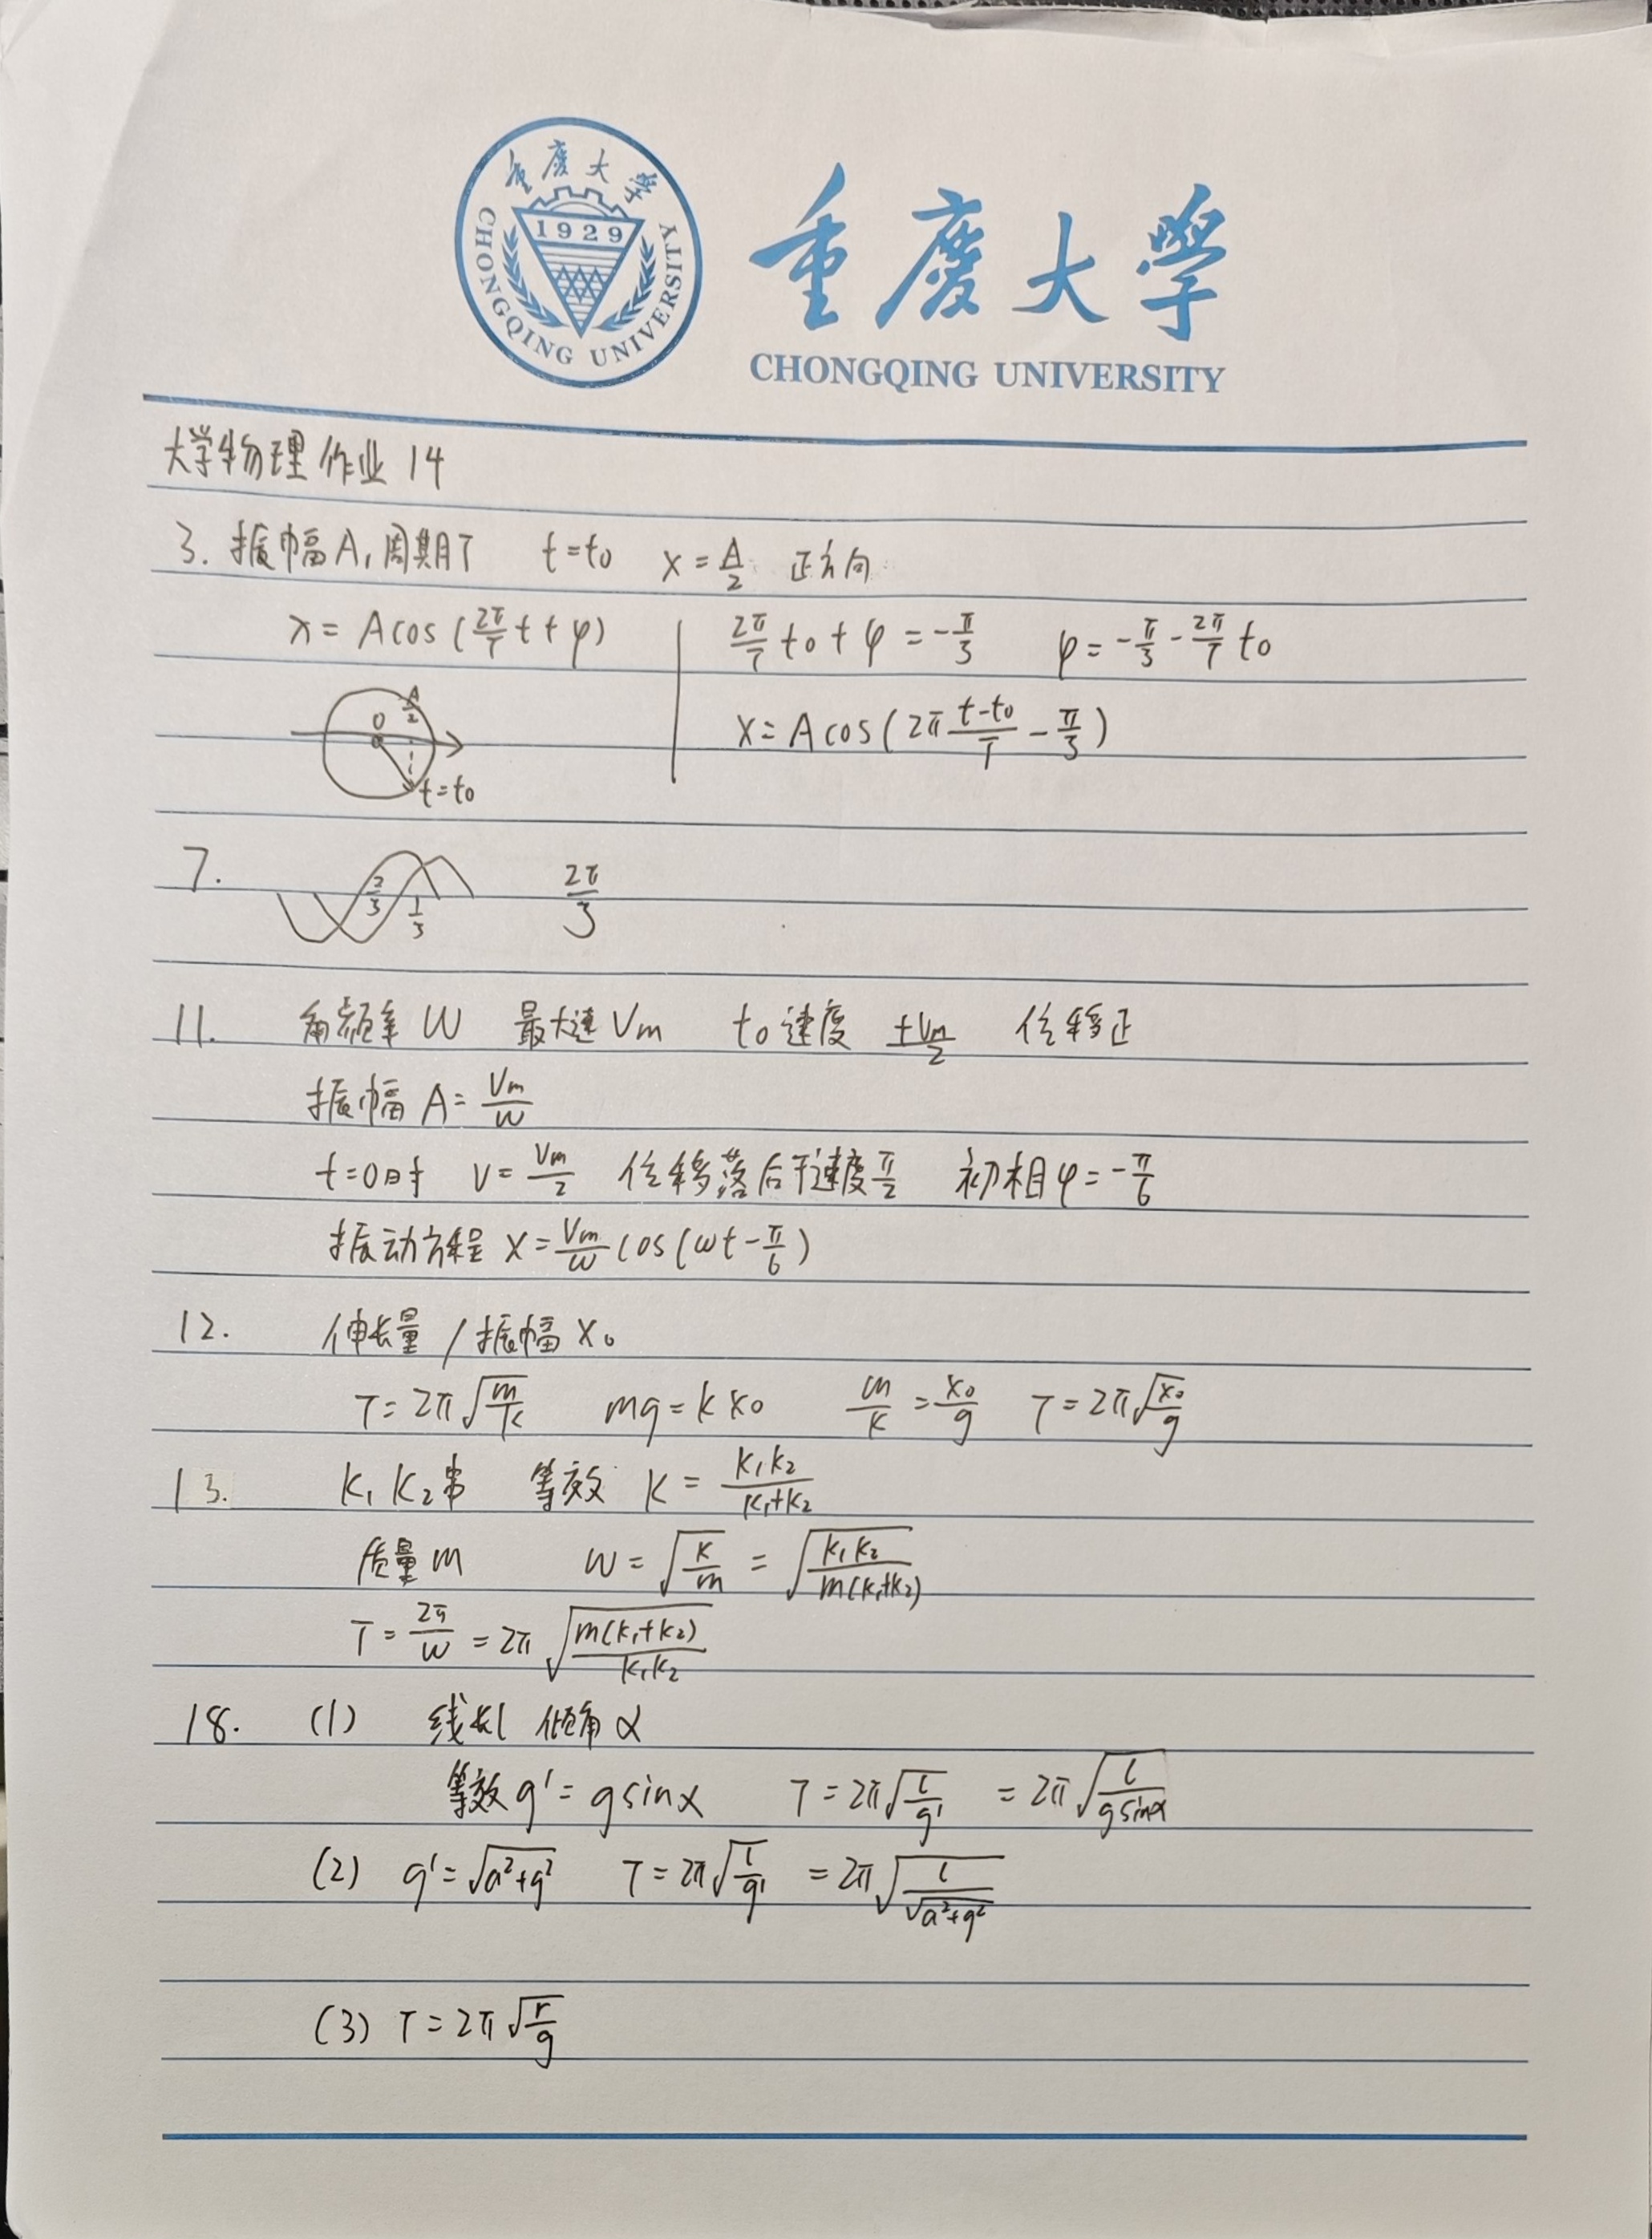 重慶大學
CHONGQING UNIVERSITY
1929
重慶大學
CHONGQING UNIVERSITY
大学物理作业 14
3. 振幅A,周期T t=t₀ x=A/2 正方向
x=Acos(2π/T t+φ) 2π/T t₀+φ=-π/3 φ=-π/3-2π/T t₀
O A/2 x=Acos(2π (t-t₀)/T - π/3)
t=t₀
7. 2/3 1/3 2π/3
11. 角频率W 最大速Vm t₀速度 +Vm/2 位移正
振幅A=Vm/W
t=0时 V=Vm/2 位移落后于速度π/2 初相φ=-π/6
振动方程 X=Vm/W cos(ωt-π/6)
12. 伸长量/振幅X₀
T=2π√(m/k) mg=kx₀ m/k=x₀/g T=2π√(x₀/g)
13. K₁ K₂串 等效 K=K₁K₂/(K₁+K₂)
质量m W=√(K/m)=√(K₁K₂/(m(K₁+K₂)))
T=2π/W=2π√(m(K₁+K₂)/(K₁K₂))
18. (1) 线长l 倾角α
等效g'=gsinα T=2π√(l/g') =2π√(l/(gsinα))
(2) g'=√(a²+g²) T=2π√(l/g') =2π√(l/√(a²+g²))
(3) T=2π√(r/g)